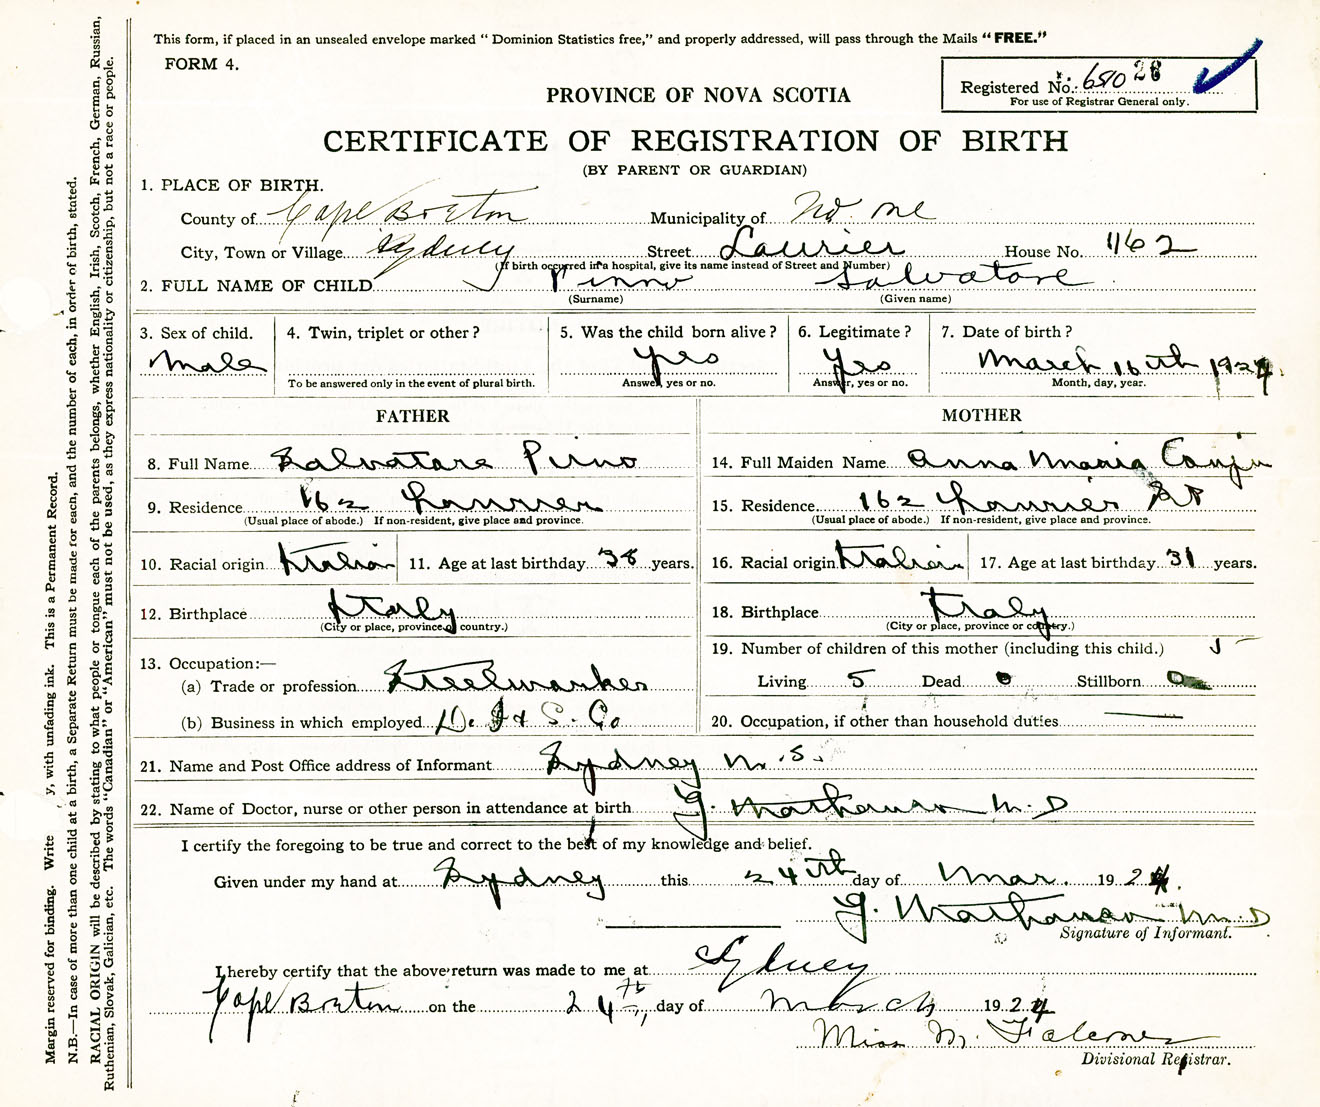 This form, if placed in an unsealed envelope marked “ Dominion Statistics free,” and properly addressed, will pass through the Mails “ FREE.”
FORM 4.
Registered No. 28
For use of Registrar General only.
PROVINCE OF NOVA SCOTIA
CERTIFICATE OF REGISTRATION OF BIRTH
(BY PARENT OR GUARDIAN)
1. PLACE OF BIRTH.
County of Cape Breton Municipality of No. one
City, Town or Village Sydney Street Laurier House No. 162
(If birth occurred in a hospital, give its name instead of Street and Number)
2. FULL NAME OF CHILD Pinno Salvatore
(Surname) (Given name)
3. Sex of child. 4. Twin, triplet or other? 5. Was the child born alive? 6. Legitimate? 7. Date of birth?
Male yes yes March 16th 1924
To be answered only in the event of plural birth. Answer, yes or no. Answer, yes or no. Month, day, year.
FATHER MOTHER
8. Full Name Salvatore Pinno 14. Full Maiden Name Anna Maria
9. Residence 162 Laurier 15. Residence 162 Laurier St
(Usual place of abode.) If non-resident, give place and province. (Usual place of abode.) If non-resident, give place and province.
10. Racial origin Italian 11. Age at last birthday 38 years. 16. Racial origin Italian 17. Age at last birthday 31 years.
12. Birthplace Italy 18. Birthplace Italy
(City or place, province or country.) (City or place, province or country.)
13. Occupation:— 19. Number of children of this mother (including this child.) 5
(a) Trade or profession Steelworker Living 5 Dead 0 Stillborn 0
(b) Business in which employed D. I & S. Co 20. Occupation, if other than household duties
21. Name and Post Office address of Informant Sydney N.S.
22. Name of Doctor, nurse or other person in attendance at birth G. M.D
I certify the foregoing to be true and correct to the best of my knowledge and belief.
Given under my hand at Sydney this 24th day of Mar. 1924.
G. M.D
Signature of Informant.
I hereby certify that the above return was made to me at Sydney
Cape Breton on the 24th day of March 1924
Miss M. Falconer
Divisional Registrar.
Margin reserved for binding. Write y, with unfading ink. This is a Permanent Record.
N.B.—In case of more than one child at a birth, a Separate Return must be made for each, and the number of each, in order of birth, stated.
RACIAL ORIGIN will be described by stating to what people or tongue each of the parents belongs, whether English, Irish, Scotch, French, German, Russian,
Ruthenian, Slovak, Galician, etc. The words “Canadian” or “American” must not be used, as they express nationality or citizenship, but not a race or people.